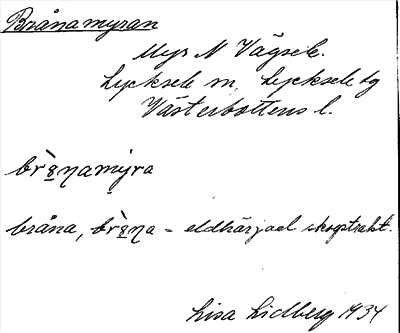 Brånamyran
Myr N Vägsele.
Lycksele sn, Lycksele lg
Västerbottens l.
br̀ɷ̨ŋamyra
bråna, br̀ɷ̨ŋa – eldhärjad skogstrakt.
Lisa Lidberg 1934